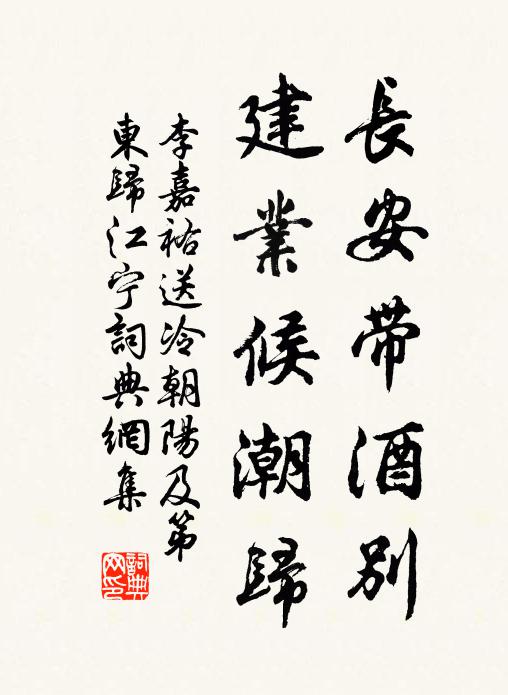 長安带酒別
建業候潮歸
李嘉祐送冷朝陽及第
東歸江宁詞典網集
詞典
网印